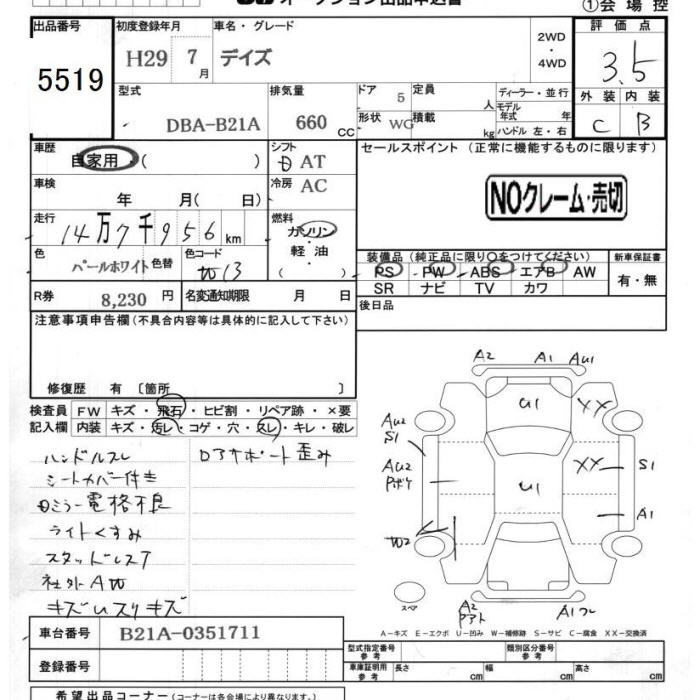 オークション出品申込書
①会場控
出品番号
初度登録年月
車名・グレード
2WD
・
4WD
評価点
5519
H29
7
月
デイズ
3.5
型式
排気量
ドア
5
定員
人
ディーラー・並行
外装
内装
DBA-B21A
660
CC
形状
WG
積載
kg
モデル年式
年
ハンドル 左・右
C
B
車歴
自家用・(
)
シフト
AT
セールスポイント(正常に機能するものに限ります)
車検
年
月(
日)
冷房
AC
NOクレーム・売切
走行
14万7千956km
燃料
ガソリン
軽油
(
)
色
パールホワイト
色替
色コード
W13
装備品(純正品に限り○をつけてください)
新車保証書
PS
PW
ABS
エアB
AW
有・無
SR
ナビ
TV
カワ
R券
8,230
円
名変通知期限
月
日
後日品
注意事項申告欄(不具合内容等は具体的に記入して下さい)
修復歴
有〔箇所
〕
検査員
記入欄
FW
キズ・飛石・ヒビ割・リペア跡・×要
内装
キズ・汚レ・コゲ・穴・スレ・キレ・破レ
ハンドルスレ
シートカバー付き
ミラー電格不良
ライトくすみ
スタッドレスT
社外AW
キズUスリキズ
Dアサポート歪み
A2
A1
AU1
U1
XX
AU2
S1
AU2
XX
S1
U1
A1
W2
スペア
A2
A1
A-キズ E-エクボ U-凹み W-補修跡 S-サビ C-腐食 XX-交換済
車台番号
B21A-0351711
型式指定番号
参考
類別区分番号
参考
登録番号
車庫証明用
参考
長さ
cm
幅
cm
高さ
cm
希望出品コーナー(コーナーは各会場により異なります。)